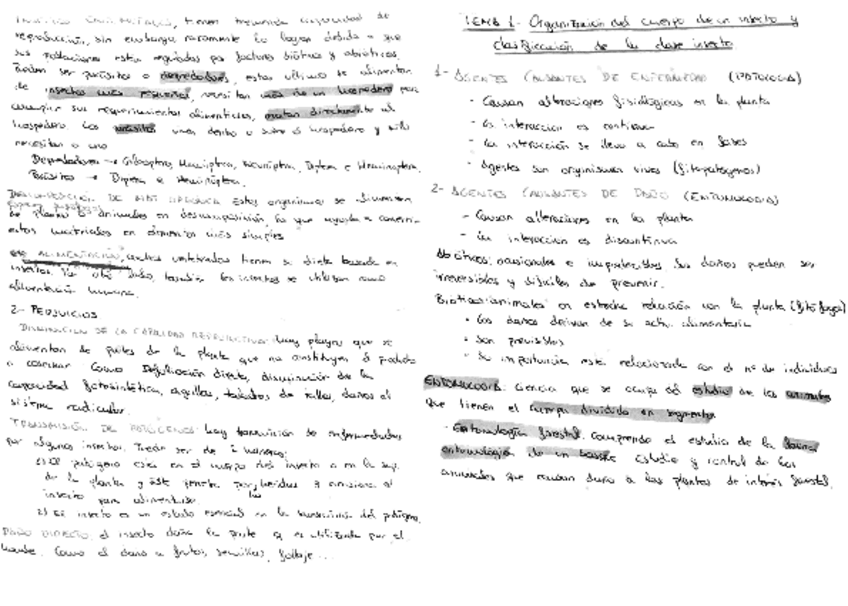 reproducción, sin embargo raramente lo logran debido a que
sus poblaciones están reguladas por factores bióticos y abióticos.
Pueden ser parásitos o depredadores, estos último se alimentan
de insectos más pequeños, necesitan más de un hospedero para
cumplir sus requerimientos alimenticios, matan directamente al
hospedero. Los parásitos viven dentro o sobre el hospedero y sólo
necesitan a uno
Depredadores → Coleoptera, Hemiptera, Neuróptera, Diptera e Himenoptera.
Parásitos → Diptera e Himenóptera.
Estos organismos se alimentan
de plantas o animales en descomposición, lo que ayuda a convertir
estos materiales en elementos más simples
ALIMENTACIÓN, muchos vertebrados tienen su dieta basada en
insectos. Por otro lado, también los insectos se utilizan como
alimentación humana.
2- PERJUICIOS
DISMINUCIÓN DE LA CAPACIDAD REPRODUCTIVA: Hay plagas que se
alimentan de partes de la planta que no constituyen el producto
a cosechar. Como Defoliación directa, disminución de la
capacidad fotosintética, agallas, taladros de tallos, daños al
sistema radicular.
TRANSMISIÓN DE PATÓGENOS: hay transmisión de enfermedades
por algunos insectos. Puede ser de 2 maneras:
1) El patógeno está en el cuerpo del insecto o en la sup.
de la planta y éste penetra por heridas
insecto para alimentarse
2) El insecto es un estado esencial en la transmisión del patógeno.
DAÑO DIRECTO: el insecto daña la parte q es utilizada por el
hombre. Como el daño a frutos, semillas, follaje...
TEMA 1- Organización del cuerpo de un insecto y
clasificación de la clase insecto
1- AGENTES CAUSANTES DE ENFERMEDAD (PATOLOGIA)
- Causan alteraciones fisiológicas en la planta
- La interacción es continua
- La interacción se lleva a cabo en fases
- Agentes son organismos vivos (fitopatógenos)
2- AGENTES CAUSANTES DE DAÑO (ENTOMOLOGIA)
- Causan alteraciones en la planta
- La interacción es discontinua
Abióticos: ocasionales e impredecibles. Sus daños pueden ser
irreversibles y difíciles de prevenir.
Bioticos: animales en estrecha relación con la planta (fitófagos)
• Los daños derivan de su activ. alimentaria
• Son previsibles
• Su importancia está relacionada con el nº de individuos
ENTOMOLOGIA: ciencia que se ocupa del estudio de los animales
que tienen el cuerpo dividido en segmentos
- Entomología forestal: Comprende el estudio de la fauna
entomológica de un bosque. Estudio y control de los
animales que causan daño a las plantas de interés forestal.